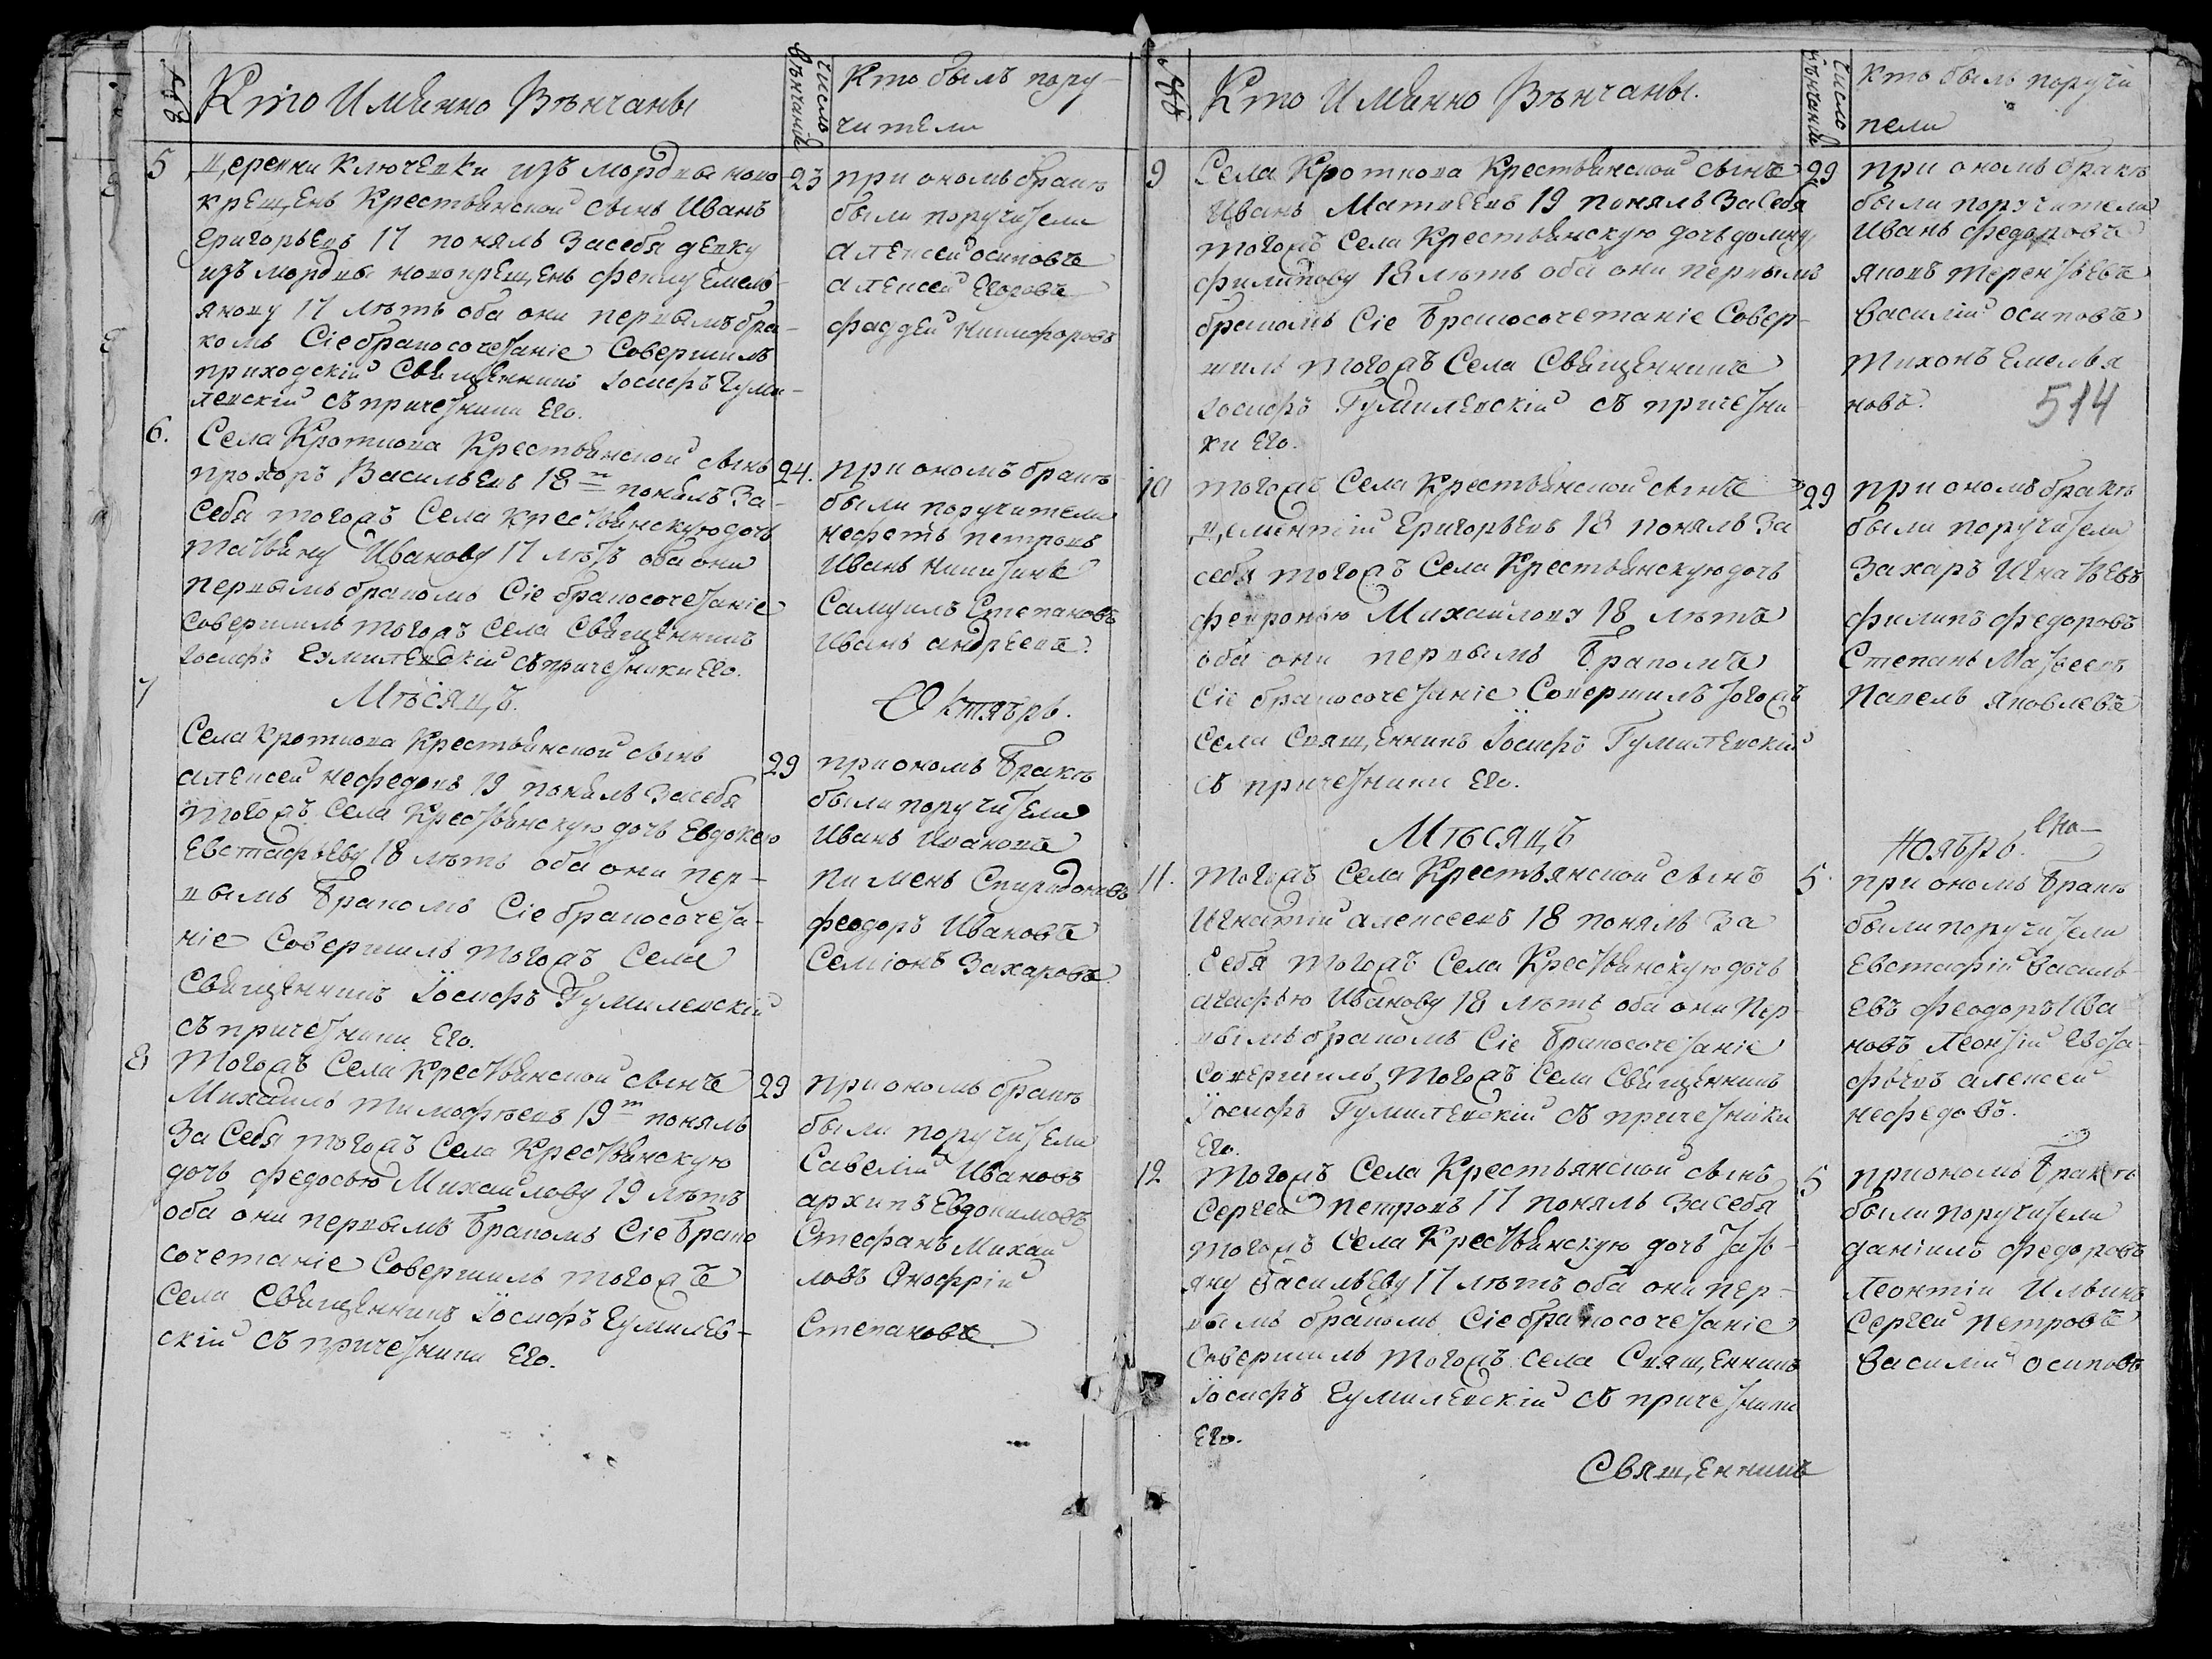 №
Кто Имянно Вѣнчаны
число Вѣнчанїе
Кто былъ пору-
чители
5
Деревни Ключевки изъ мордвы ново-
крещенъ Крестьянской сынъ Иванъ
Григорьевъ 17 понялъ За себя девку
изъ мордвы новокрещенъ феклу Емель-
янову 17 лѣтъ оба они первымъ бра-
комъ Сіе бракосочетаніе Совершилъ
приходскій Священникъ Іосифъ Гуми-
левскій съ причетники Его.
23
при ономъ бракѣ
были поручители
Алексей осиповъ
Алексей Егоровъ
фаддей Никифоровъ
6.
Села Кроткова Крестьянской сынъ
прохоръ Васильевъ 18 т понялъ За-
себя тогожъ Села крестьянскую дочь
татьяну Иванову 17 лѣтъ оба они
первымъ бракомъ Сіе бракосочетаніе
совершилъ тогожъ села Священникъ
Іосифъ Гумилевскій съ причетники Его.
24.
при ономъ бракѣ
были поручители
нефетъ петровъ
Иванъ Никитинъ
Самуилъ Степановъ
Иванъ андреевъ
7
Мѣсяцъ.
Октябрь.
Села кроткова Крестьянской сынъ
алексей нефедовъ 19 понялъ За себя
тогожъ Села Крестьянскую дочь Евдокею
Евстафьеву 18 лѣтъ оба они пер-
вымъ бракомъ Сіе бракосочета-
ніе Совершилъ тогожъ Села
Священникъ Іосифъ Гумилевскій
съ причетники Его.
29
при ономъ бракѣ
были поручители
Иванъ Ивановъ
Пименъ Спиридоновъ
феодоръ Ивановъ
Семіонъ Захаровъ
8
Тогожъ Села Крестьянской сынъ
Михаилъ тимофѣевъ 19 т понялъ
За Себя тогожъ Села Крестьянскую
дочь федосью Михайлову 19 лѣтъ
оба они первымъ бракомъ Сіе брако
сочетаніе Совершилъ тогожъ
Села Священникъ Іосифъ Гумилев-
скій съ причетники Его.
29
при ономъ бракѣ
были поручители
Савелій Ивановъ
архипъ Евдокимовъ
Стефанъ Михай
ловъ Онофрій
Степановъ
№
Кто Имянно Вѣнчаны.
число вѣнчанїе
кто былъ поручи
тели
9
Села Кроткова Крестьянской сынъ
Иванъ Матвеевъ 19 понялъ За Себя
тогожъ Села Крестьянскую дочь домну
филипову 18 лѣтъ оба они первымъ
бракомъ Сіе бракосочетаніе Совер-
шилъ тогожъ Села Священникъ
Іосифъ Гумилевскій съ причетни
ки Его.
29
при ономъ бракѣ
были поручители
Иванъ федоровъ
яковъ терентьевъ
василій осиповъ
тихонъ Емелья
новъ.
514
10
тогожъ Села Крестьянской сынъ
Дементій Григорьевъ 18 понялъ За
себя тогожъ Села Крестьянскую дочь
февронью Михайлову 18 лѣтъ
оба они первымъ бракомъ
Сіе бракосочетаніе Совершилъ тогожъ
села Священникъ Іосифъ Гумилевскій
съ причетники Его.
29
при ономъ бракѣ
были поручители
Захаръ Игнатьевъ
филипъ федоровъ
Степанъ Матвеевъ
Павелъ яковлевъ
Мѣсяцъ
Ноябрь.
11.
Тогожъ Села Крестьянской сынъ
Игнатій алексеевъ 18 понялъ За
Себя тогожъ Села Крестьянскую дочь
агафью Иванову 18 лѣтъ оба они Пер-
вымъ бракомъ Сіе бракосочетаніе
совершилъ тогожъ Села Священникъ
Іосифъ Гумилевскій съ причетники
Его.
5
при ономъ бракѣ
были поручители
Евстафій василь-
евъ феодоръ Ива
новъ Леонтій Евста-
фьевъ алексей
нефедовъ.
12
тогожъ Села Крестьянской сынъ
Сергей петровъ 17 понялъ За себя
тогожъ Села Крестьянскую дочь тать-
яну Васильеву 17 лѣтъ оба они пер-
вымъ бракомъ Сіе бракосочетаніе
Совершилъ тогожъ села Священникъ
Іосифъ Гумилевскій съ причетники
Его.
5
при ономъ бракѣ
были поручители
даніилъ федоровъ
Леонтій Ильинъ
Сергей петровъ
Василій осиповъ
Священникъ